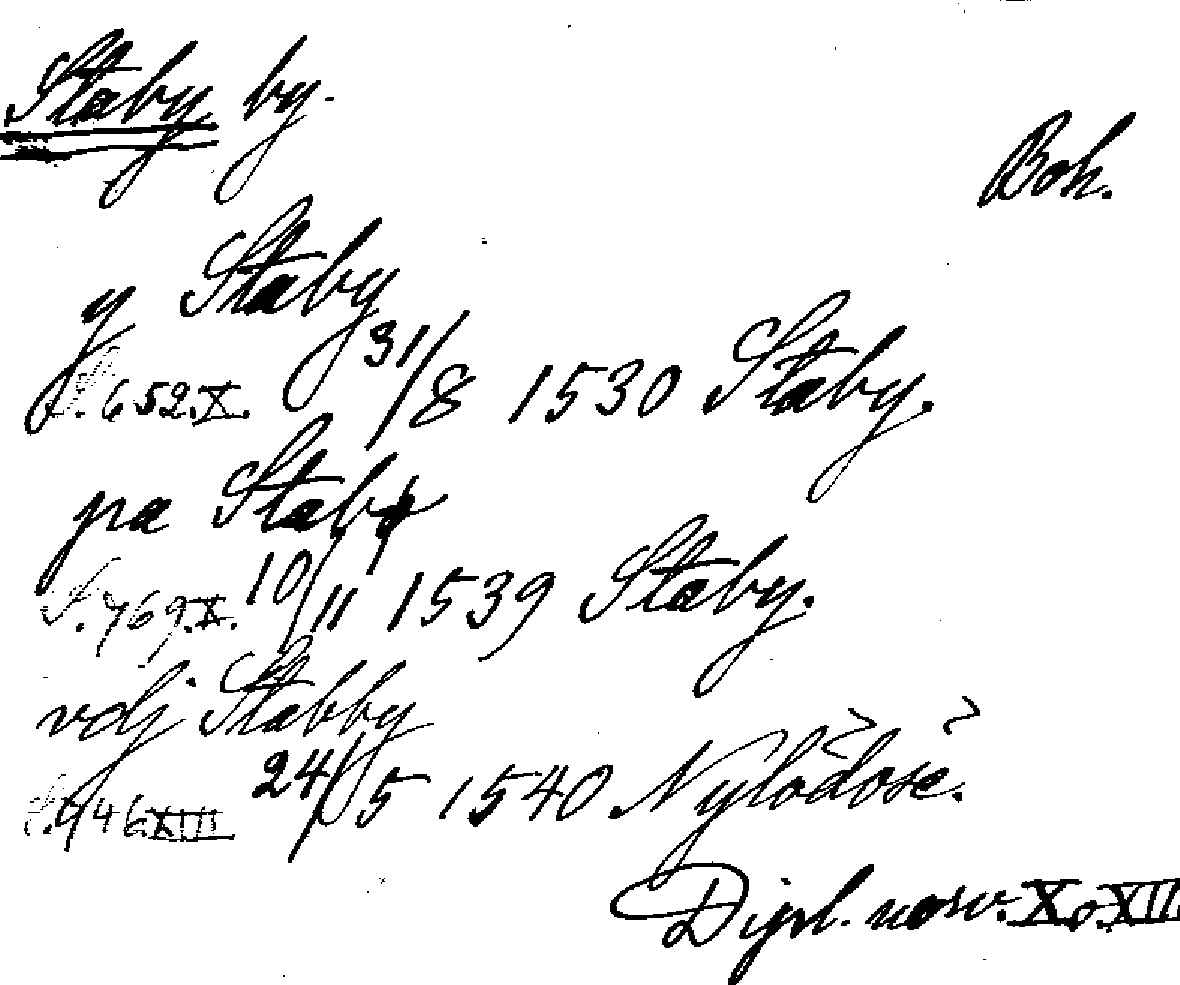 Staby by.
Boh.
y Staby
S. 652. X. 31/8 1530 Staby.
pa Staby
S. 769. X. 10/11 1539 Staby.
vdj Stabby
24/5 1540 Nylödöse.
Dipl. norv. X o XIII